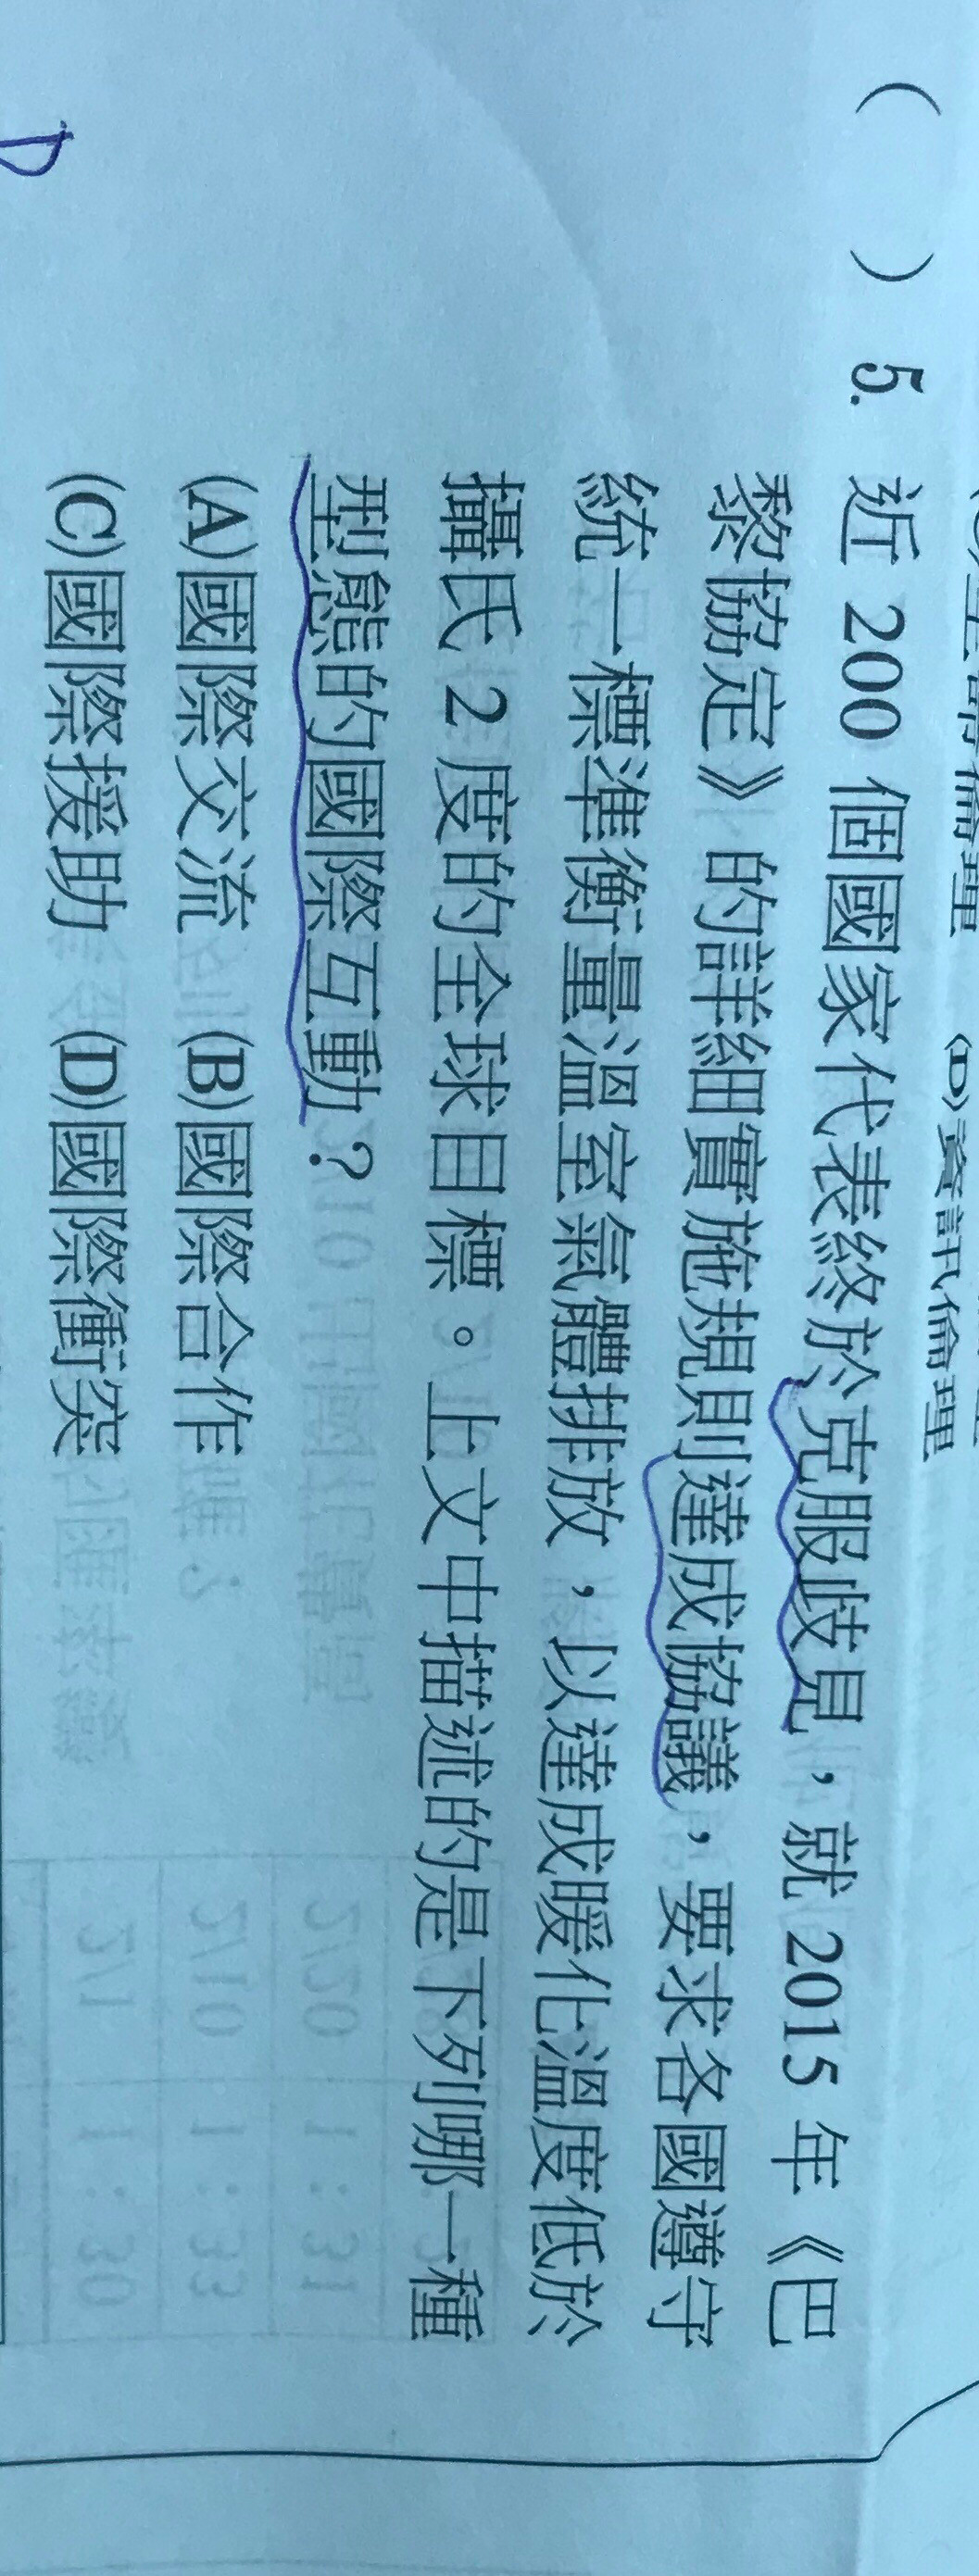 (D)資訊倫理
(　) 5. 近 200 個國家代表終於克服歧見，就 2015 年《巴
黎協定》的詳細實施規則達成協議，要求各國遵守
統一標準衡量溫室氣體排放，以達成暖化溫度低於
攝氏 2 度的全球目標。上文中描述的是下列哪一種
型態的國際互動？
(A)國際交流 (B)國際合作
(C)國際援助 (D)國際衝突